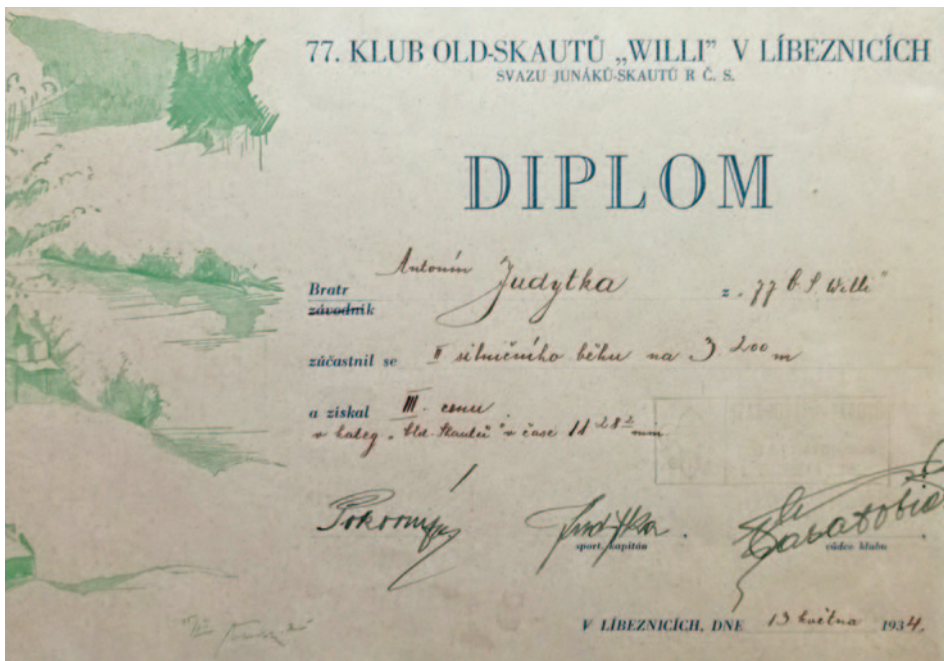 77. KLUB OLD-SKAUTŮ „WILLI” V LÍBEZNICÍCH
SVAZU JUNÁKŮ-SKAUTŮ R Č. S.
DIPLOM
Bratr Antonín Judytka z „77 O. S. Willi”
závodník
zúčastnil se II silničního běhu na 3.200 m
a získal III. cenu
v kateg. „Old-Skautů” v čase 11 28 min
Pokorný Judytka
sport. kapitán vůdce klubu
V LÍBEZNICÍCH, DNE 13 května 1934.